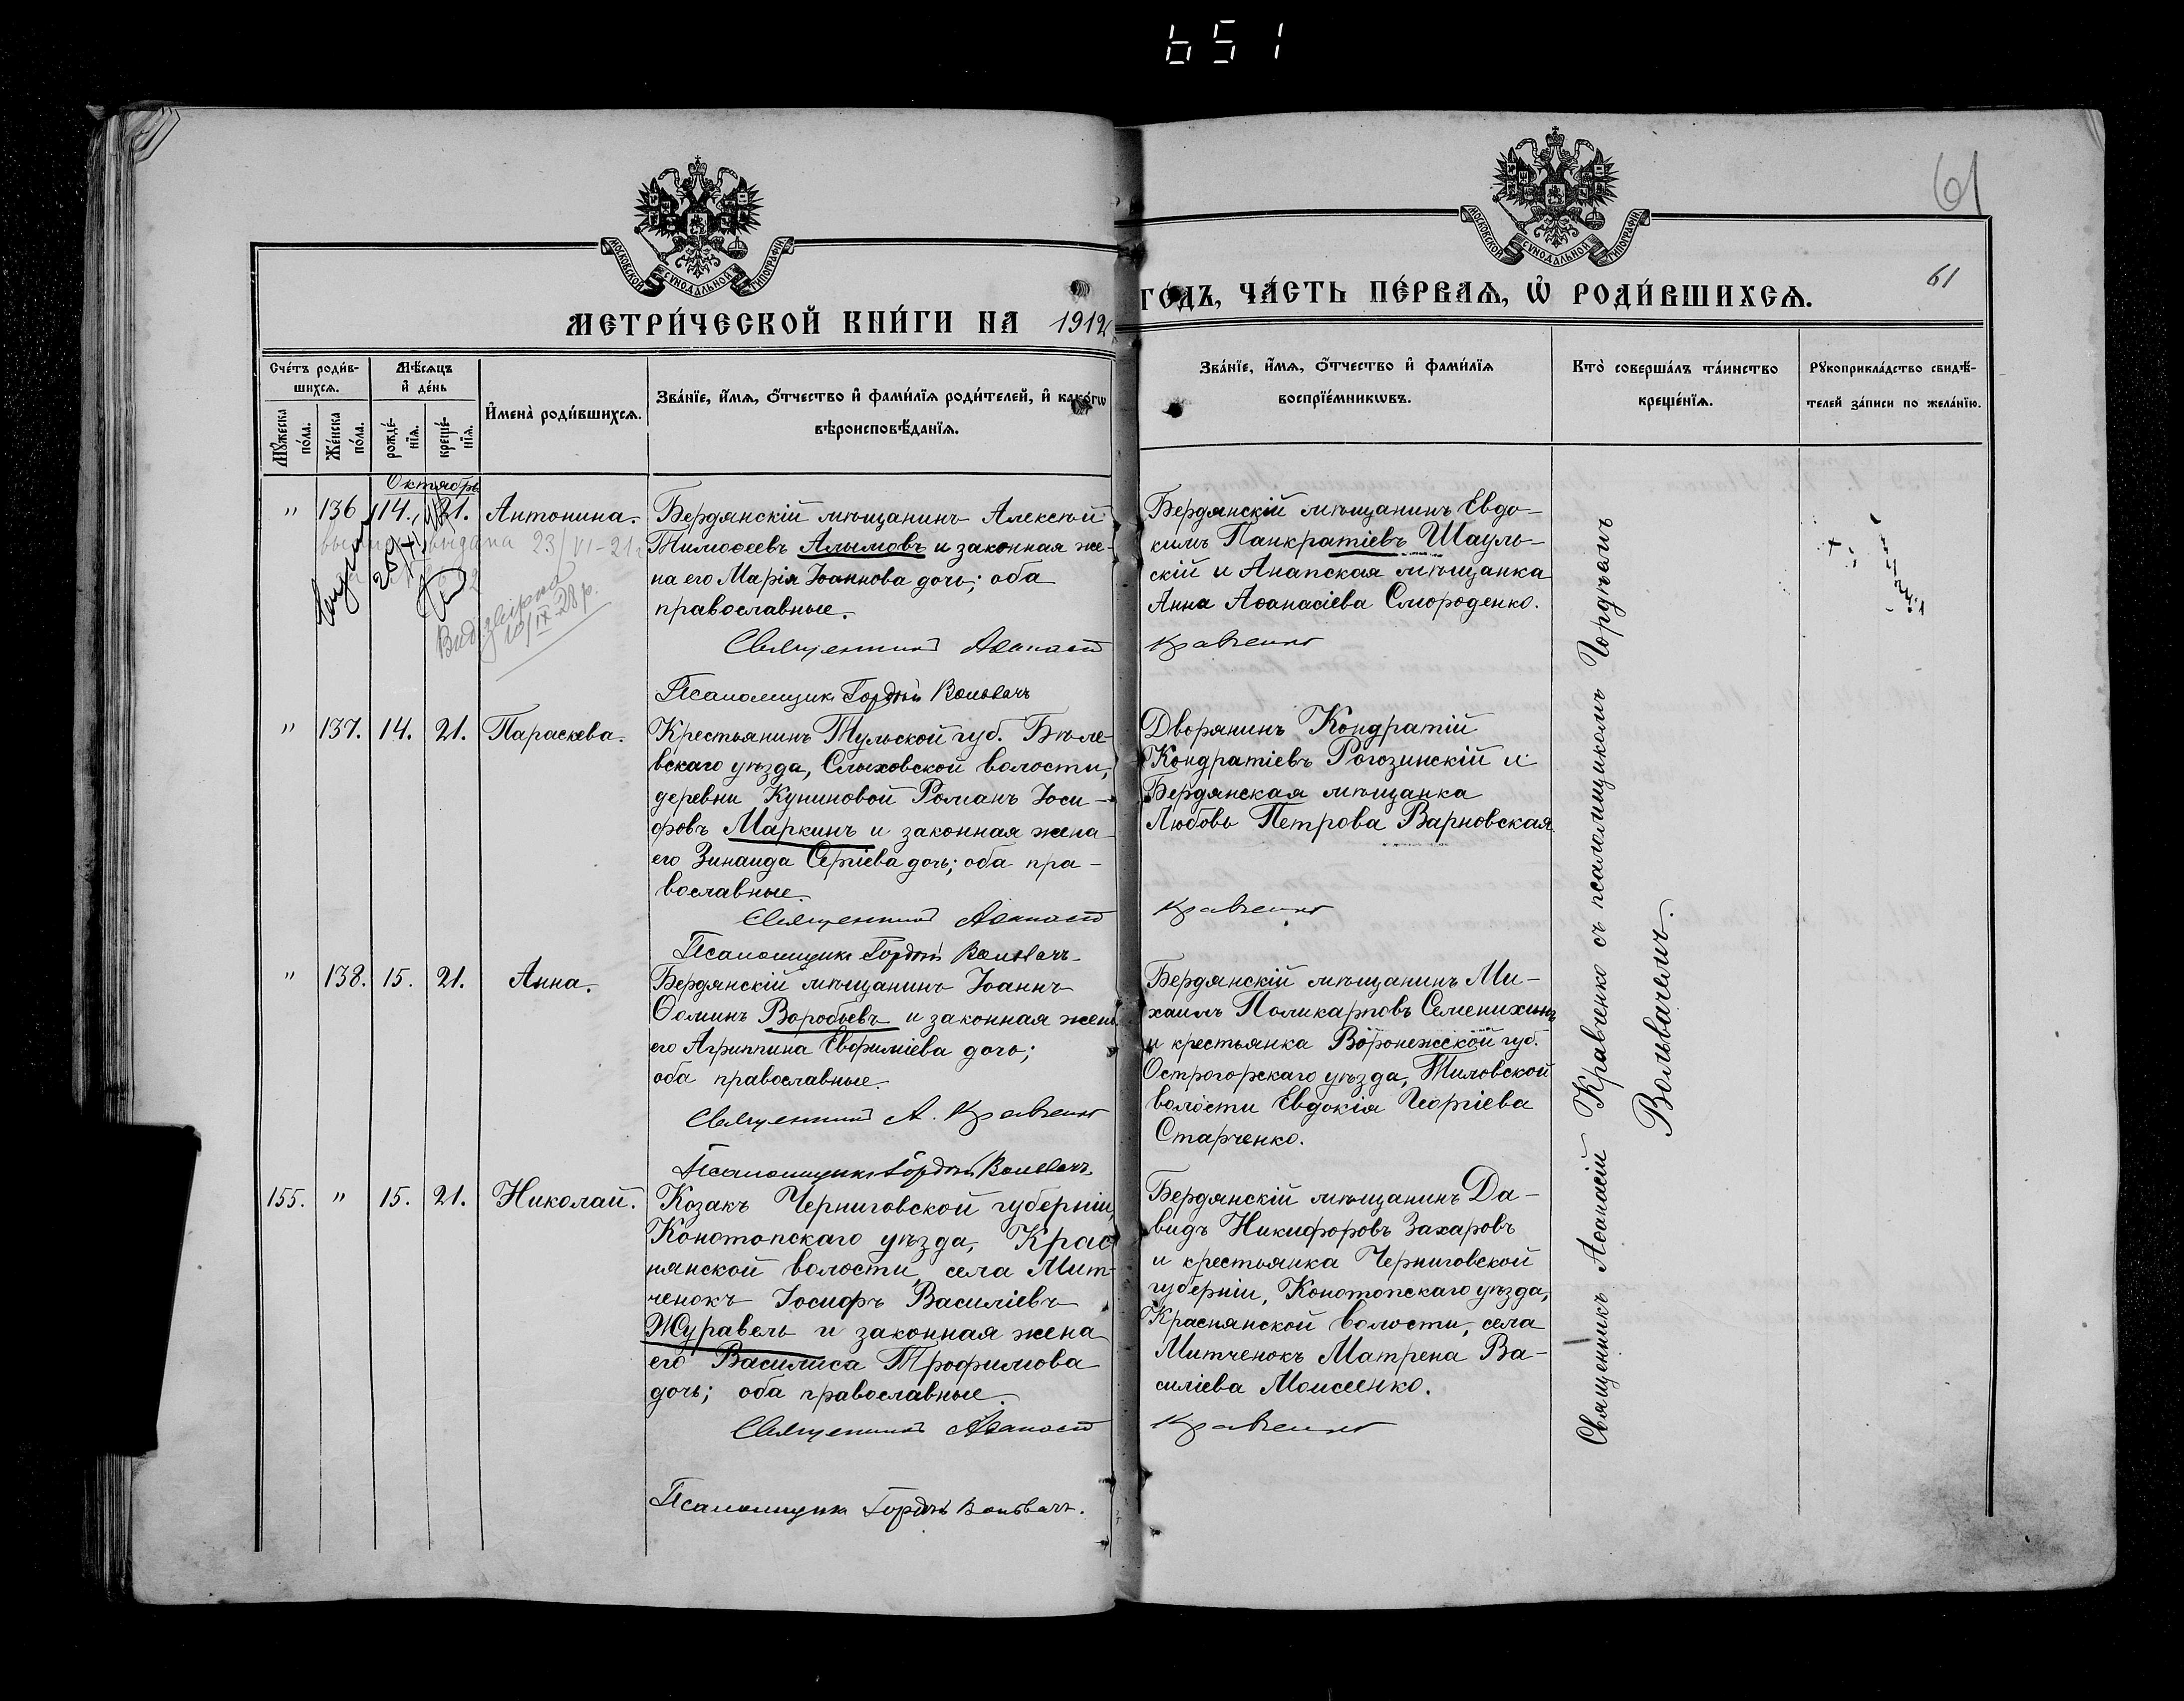 651
61
МОСКОВСКОЙ СѴНОДАЛЬНОЙ ТИПОГРАФІИ
МОСКОВСКОЙ СѴНОДАЛЬНОЙ ТИПОГРАФІИ
МЕТРИ́ЧЕСКОЙ КНИ́ГИ НА 1912
ГО́ДЪ, ЧА́СТЬ ПЕ́РВАѦ, Ѡ҆ РОДИ́ВШИХСѦ.
61
Сче́тъ роди́в-
шихсѧ.
Мꙋ́жеска по́ла.
Же́нска по́ла.
Мѣ́сѧцъ
и҆ де́нь
рожде́-
нїѧ.
креще́-
нїѧ.
И҆мена̀ роди́вшихсѧ.
Зва́нїе, и҆́мѧ, ѻ҆́тчество и҆ фами́лїѧ роди́телей, и҆ како́гѡ
вѣроисповѣ́данїѧ.
Зва́нїе, и҆́мѧ, ѻ҆́тчество и҆ фами́лїѧ
воспрїе́мникѡвъ.
Кто̀ соверша́лъ та́инство
креще́нїѧ.
Рꙋкоприкла́дство свидѣ́-
телей за́писи по жела́нїю.
Октябрь
" 136 14. 21. Антонина.
выдана 23/VI-21г
10/IX 28р.
Бердянскій мѣщанинъ Алексѣй
Тимоѳеевъ Алымовъ и законная же-
на его Марія Іоаннова дочь; оба
православные.
Священникъ Аѳанасій Кравченко
Псаломщикъ Гордѣй Вольвачъ
Бердянскій мѣщанинъ Евдо-
кимъ Панкратіевъ Шауль-
скій и Анапская мѣщанка
Анна Аѳанасіева Смороденко.
" 137. 14. 21. Параскева.
Крестьянинъ Тульской губ. Бѣле-
вскаго уѣзда, Слыховской волости,
деревни Куниновой Романъ Іоси-
фовъ Маркинъ и законная жена
его Зинаида Сергіева дочь; оба пра-
вославные.
Священникъ Аѳанасій Кравченко
Псаломщикъ Гордѣй Вольвачъ
Дворянинъ Кондратій
Кондратіевъ Рогозинскій и
Бердянская мѣщанка
Любовь Петрова Варновская
" 138. 15. 21. Анна.
Бердянскій мѣщанинъ Іоаннъ
Ѳоминъ Воробьевъ и законная жена
его Агриппина Евфиміева дочь;
оба православные.
Священникъ А. Кравченко
Псаломщикъ Гордѣй Вольвачъ
Бердянскій мѣщанинъ Ми-
хаилъ Поликарповъ Семенихинъ
и крестьянка Воронежской губ.
Острогорскаго уѣзда, Тиловской
волости Евдокія Георгіева
Старченко.
155. " 15. 21. Николай.
Козакъ Черниговской губерніи,
Конотопскаго уѣзда, Крас
нянской волости, села Мит-
ченокъ Іосифъ Василіевъ
Журавель и законная жена
его Василиса Трофимова
дочь; оба православные.
Священникъ Аѳанасій Кравченко
Псаломщикъ Гордѣй Вольвачъ.
Бердянскій мѣщанинъ Да-
видъ Никифоровъ Захаровъ
и крестьянка Черниговской
губерніи, Конотопскаго уѣзда,
Краснянской волости, села
Митченокъ Матрена Ва-
силіева Моисеенко.
Священникъ Аѳанасій Кравченко съ псаломщикомъ Гордѣемъ
Вольвачемъ.